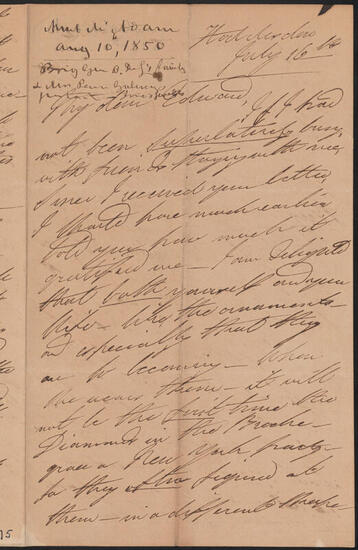 Aug 10, 1850
Brig Gen
& Mrs
July 16th
My dear Edward,
If I had
not been superlatively busy
with friends staying with me,
Since I received your letter
I should have much earlier
told you how much it
gratified me - I am delighted
that both yourself and your
Wife - like the ornaments -
and especially that they
are so becoming - When
she wears them - it will
not be the first time the
Diamonds in the Broche -
grace a New York party -
for they often figured at
them - in a different shape
75